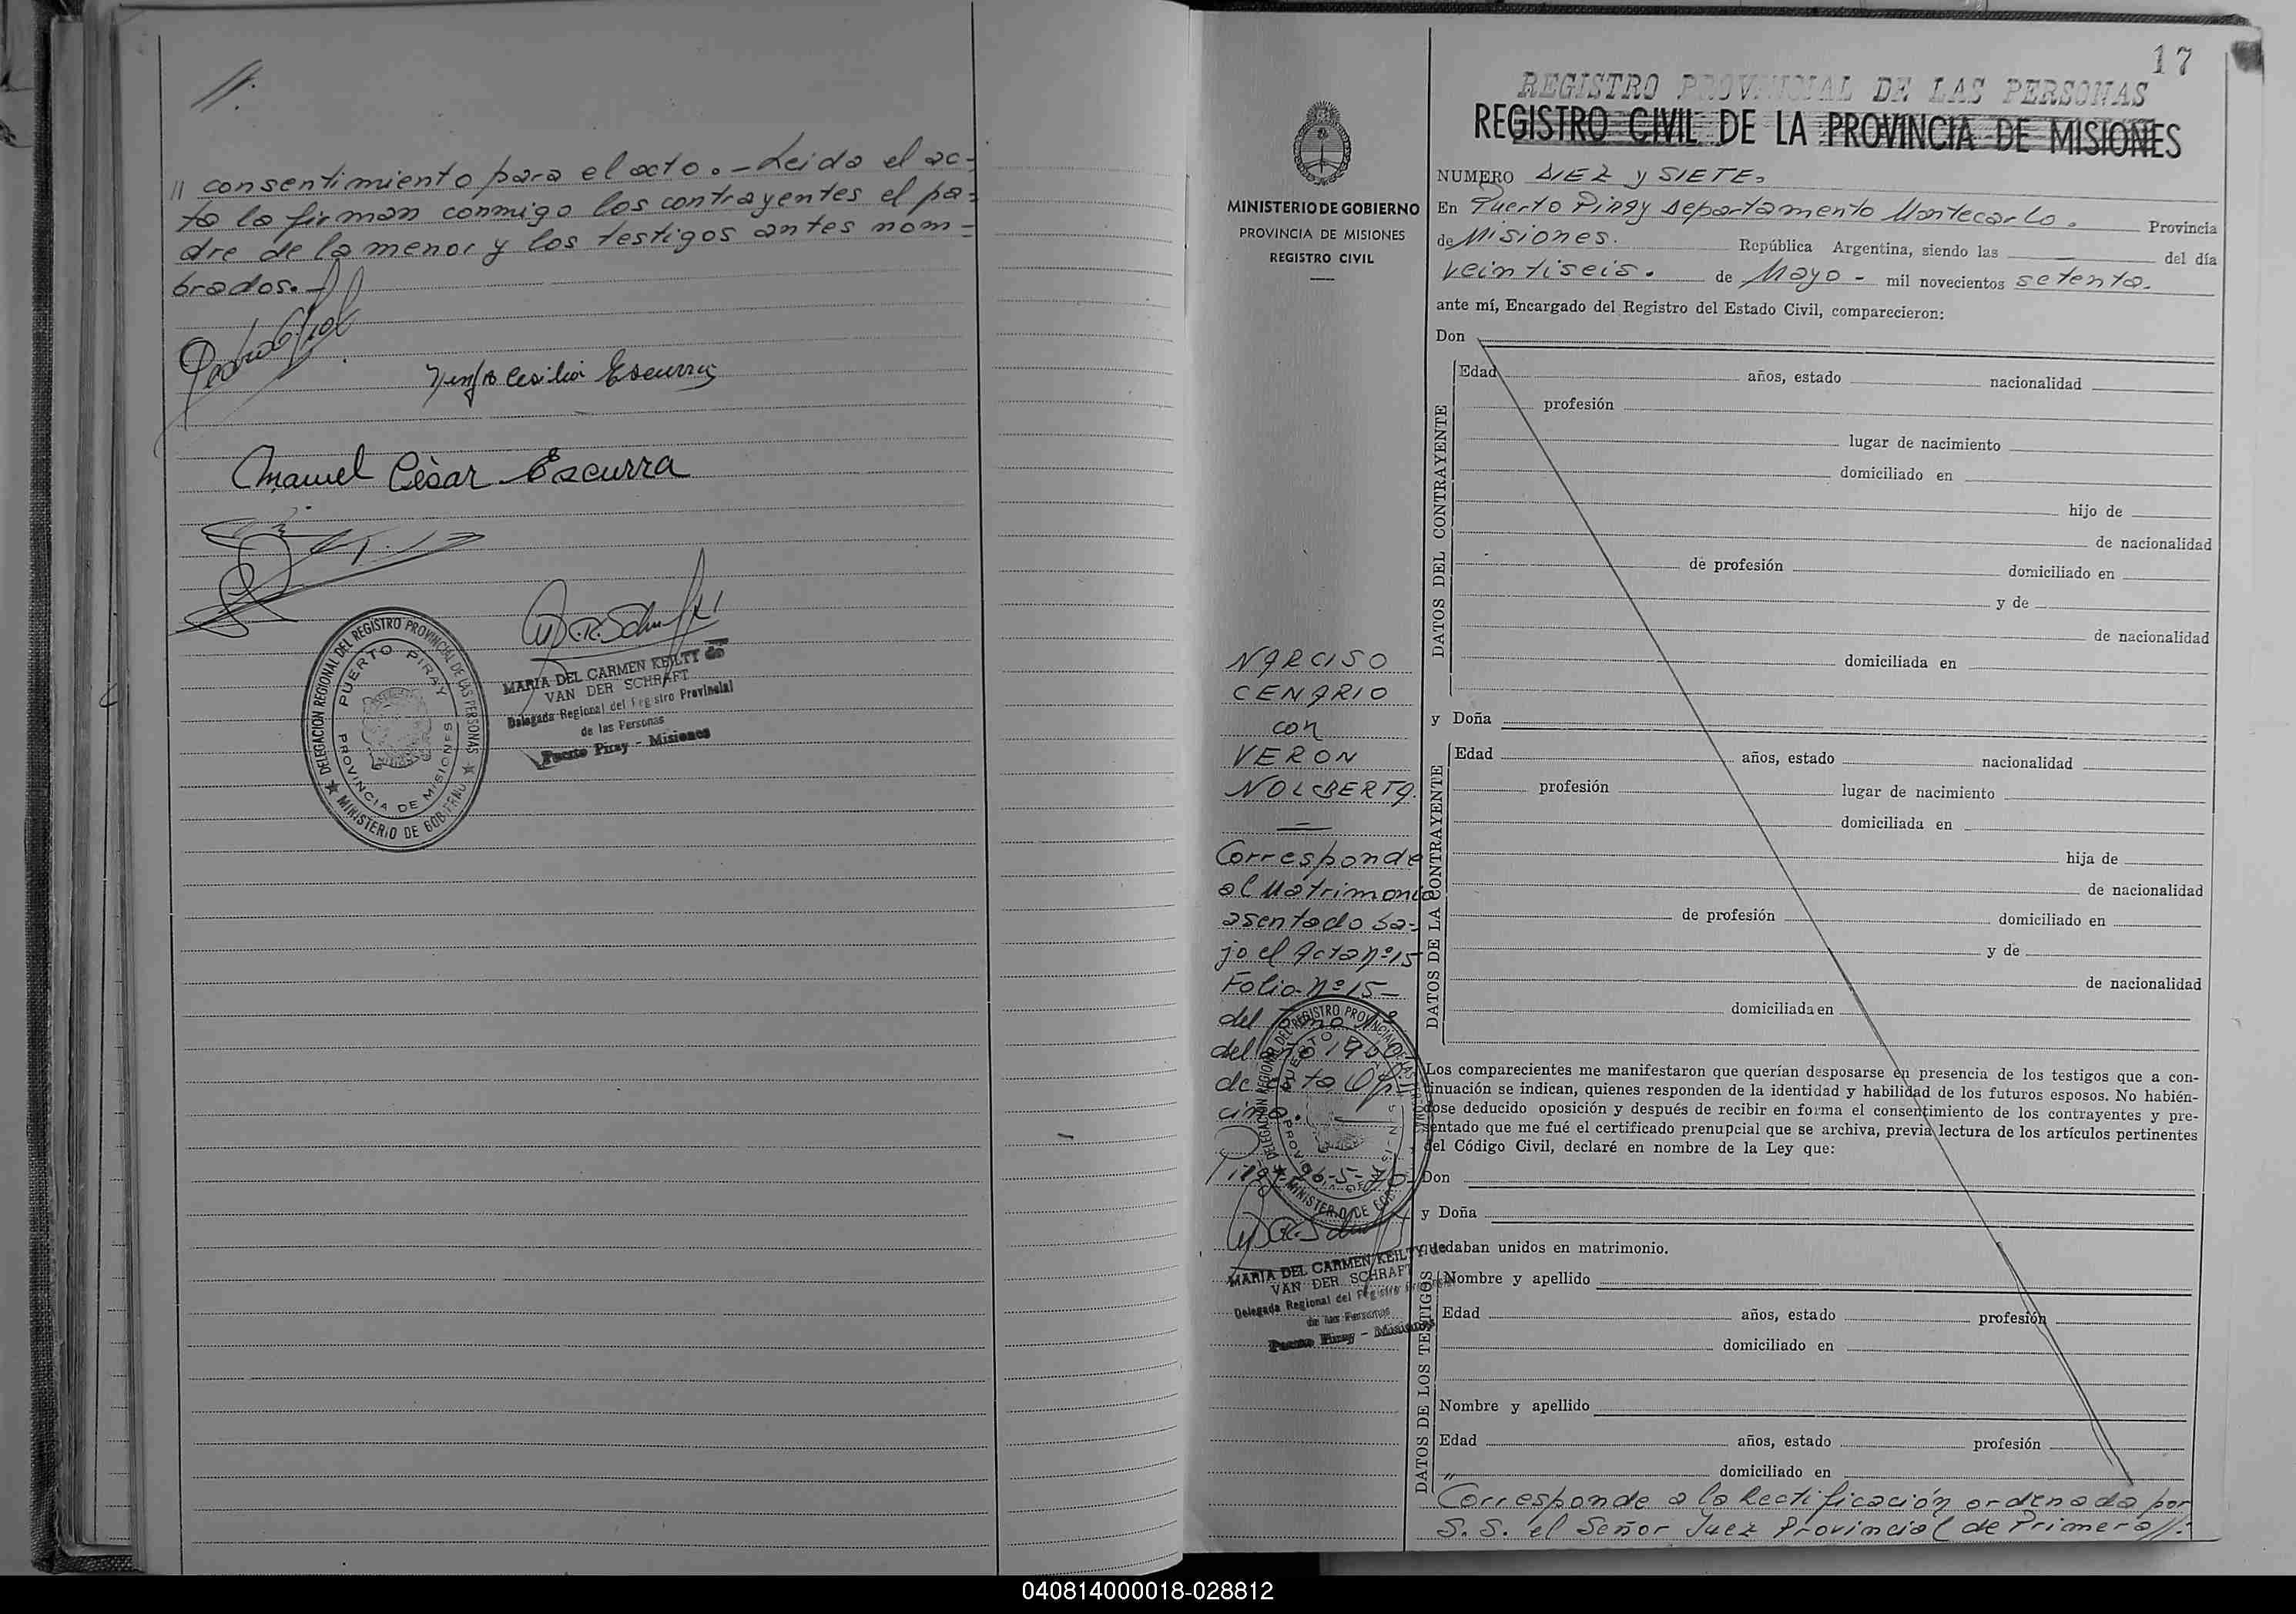 //.
// consentimiento para el acto.- Leido el ac-
to lo firman conmigo los contrayentes el pa=
dre de la menor y los testigos antes nom=
brados.-
Cesilia Escurra
Manuel Cèsar Escurra
DELEGACION REGIONAL DEL REGISTRO PROVINCIAL DE LAS PERSONAS
PUERTO PIRAY
PROVINCIA DE MISIONES
★ MINISTERIO DE GOBIERNO ★
MARIA DEL CARMEN KEILTY de
VAN DER SCHRAFT
Delegada Regional del Registro Provincial
de las Personas
Puerto Piray - Misiones
17
REGISTRO PROVINCIAL DE LAS PERSONAS
REGISTRO CIVIL DE LA PROVINCIA DE MISIONES
MINISTERIO DE GOBIERNO
PROVINCIA DE MISIONES
REGISTRO CIVIL
NARCISO
CENARIO
con
VERON
NOLBERTA.
Corresponde
al Matrimonio
asentado ba-
jo el Acta Nº 15
Folio Nº 15-
del
del
de
cina.
26-5-70
DELEGACION REGIONAL DEL REGISTRO PROVINCIAL DE LAS PERSONAS
PUERTO
★ MINISTERIO DE GOB
MARIA DEL CARMEN KEILTY de
VAN DER SCHRAFT
Delegada Regional del Registro Provincial
de las Personas
Puerto Piray - Misiones
NUMERO DIEZ y SIETE.
En Puerto Piray Departamento Montecarlo. Provincia
de Misiones. República Argentina, siendo las del día
veintiseis. de Mayo - mil novecientos setenta.
ante mí, Encargado del Registro del Estado Civil, comparecieron:
Don
DATOS DEL CONTRAYENTE
Edad años, estado nacionalidad
profesión
lugar de nacimiento
domiciliado en
hijo de
de nacionalidad
de profesión domiciliado en
y de
de nacionalidad
domiciliada en
y Doña
DATOS DE LA CONTRAYENTE
Edad años, estado nacionalidad
profesión lugar de nacimiento
domiciliada en
hija de
de nacionalidad
de profesión domiciliado en
y de
de nacionalidad
domiciliada en
Los comparecientes me manifestaron que querían desposarse en presencia de los testigos que a con-
tinuación se indican, quienes responden de la identidad y habilidad de los futuros esposos. No habién-
dose deducido oposición y después de recibir en forma el consentimiento de los contrayentes y pre-
sentado que me fué el certificado prenupcial que se archiva, previa lectura de los artículos pertinentes
del Código Civil, declaré en nombre de la Ley que:
Don
y Doña
quedaban unidos en matrimonio.
DATOS DE LOS TESTIGOS
Nombre y apellido
Edad años, estado profesión
domiciliado en
Nombre y apellido
Edad años, estado profesión
" domiciliado en
Corresponde a la Rectificación ordenada por
S. S. el Señor Juez Provincial de Primera //:
040814000018-028812